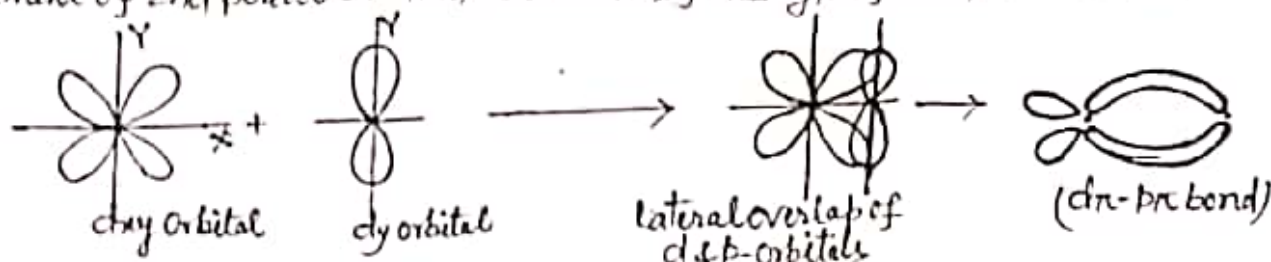 Y
Y
X +
dxy orbital
dy orbital
lateral overlap of
d & p-orbitals
(dπ-pπ bond)